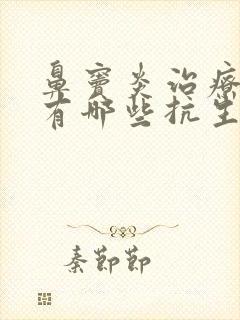 鼻窦炎治疗
有哪些抗生
秦節節